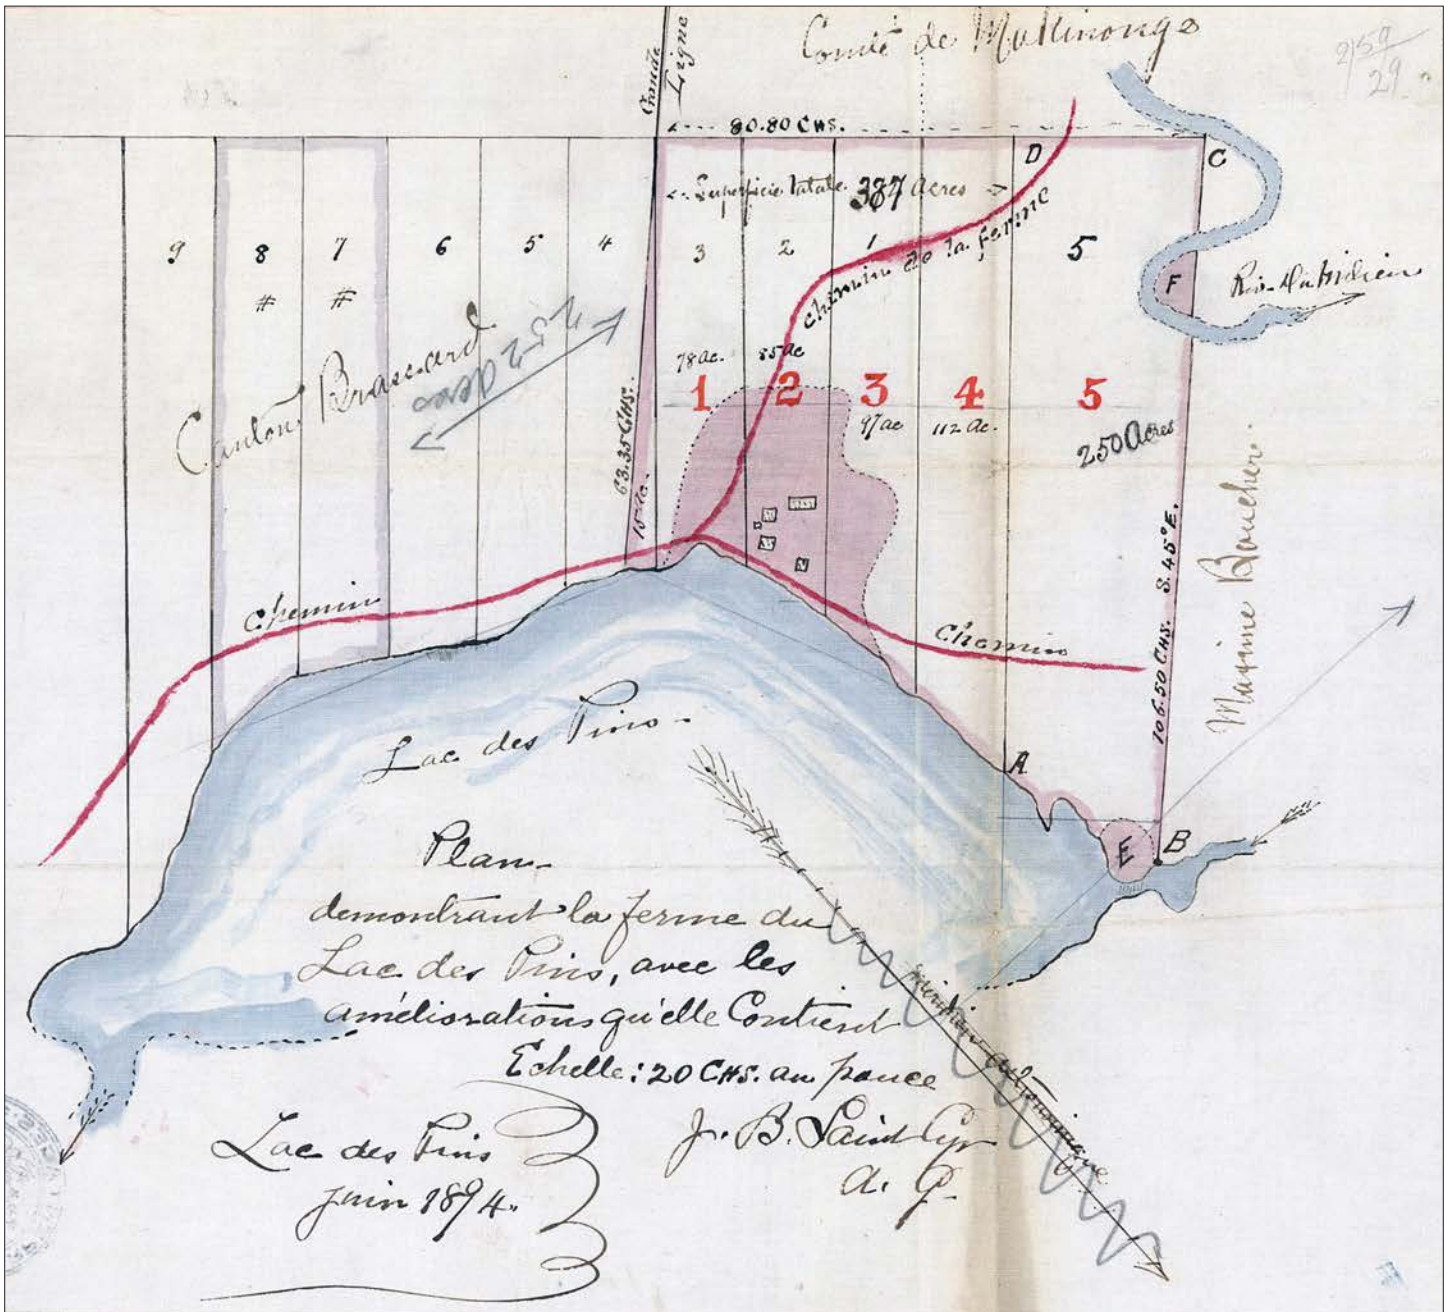 Comté de Maskinongé
259
29
Grande
Ligne
80.80 CHS.
D
C
Superficie totale 387 Acres
9
8
7
6
5
4
3
2
1
5
#
#
Chemin de la ferme
F
Canton Brassard
78 Ac.
85 Ac
1
2
3
4
5
97 ac
112 Ac.
250 Acres
63.35 CHS.
15 Ac.
106.50 CHS. S. 45° E.
Maxime Boucher
Chemin
Chemin
Lac des Pins
A
E
B
Plan
demontrant la ferme du
Lac des Pins, avec les
améliorations qu'elle Contient
Echelle: 20 CHS. au pouce
Lac des Pins
juin 1894.
J. B. Saint Cyr
A. G.